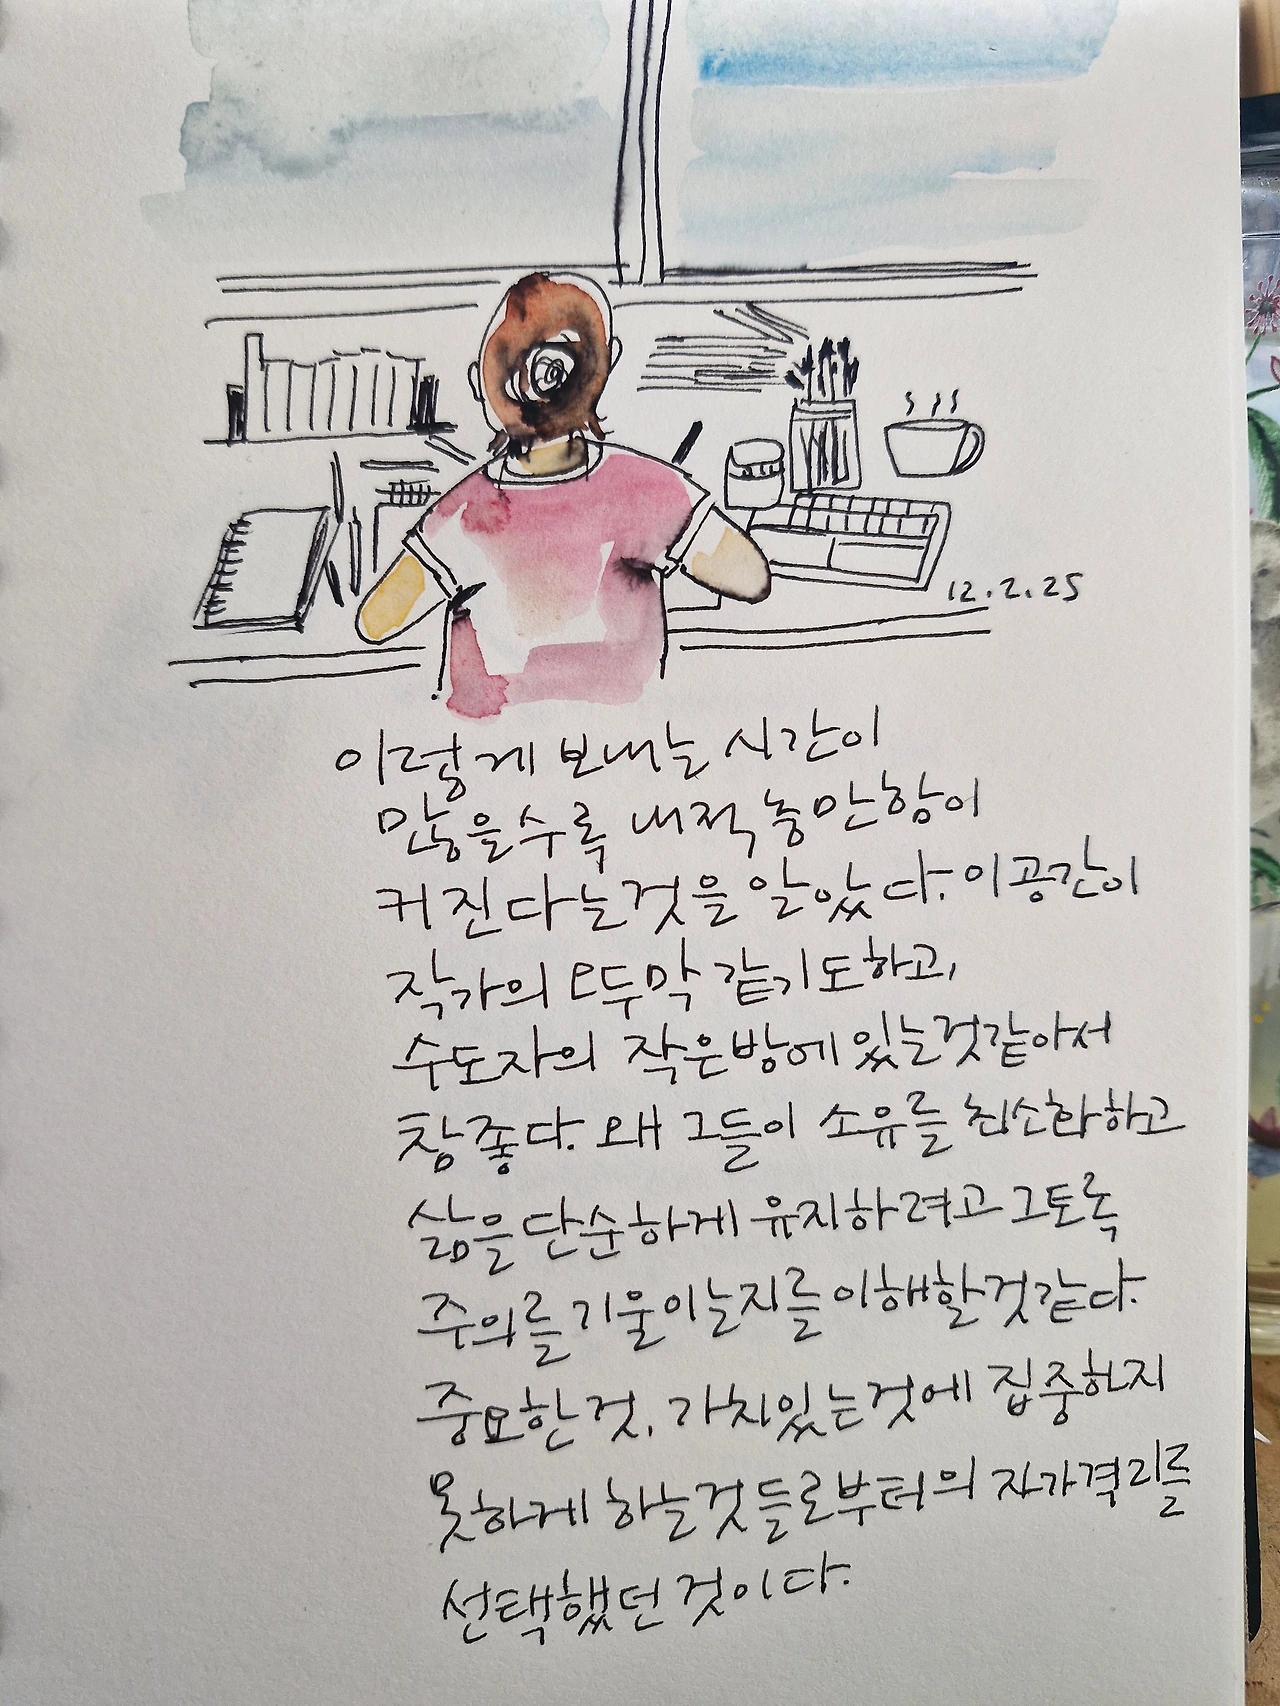 12.2.25
이렇게 보내는 시간이
많을수록 내적 충만함이
커진다는것을 알았다. 이공간이
작가의 오두막 같기도하고,
수도자의 작은방에 있는것같아서
참좋다. 왜 그들이 소유를 최소화하고
삶을단순하게 유지하려고 그토록
주의를기울이는지를 이해할것같다.
중요한것, 가치있는것에 집중하지
못하게 하는것들로부터의 자가격리를
선택했던 것이다.